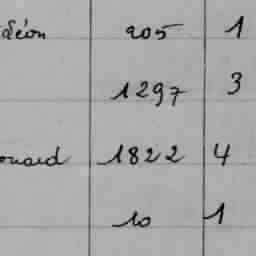 Léon 205 1
1297 3
ouard 1822 4
10 1